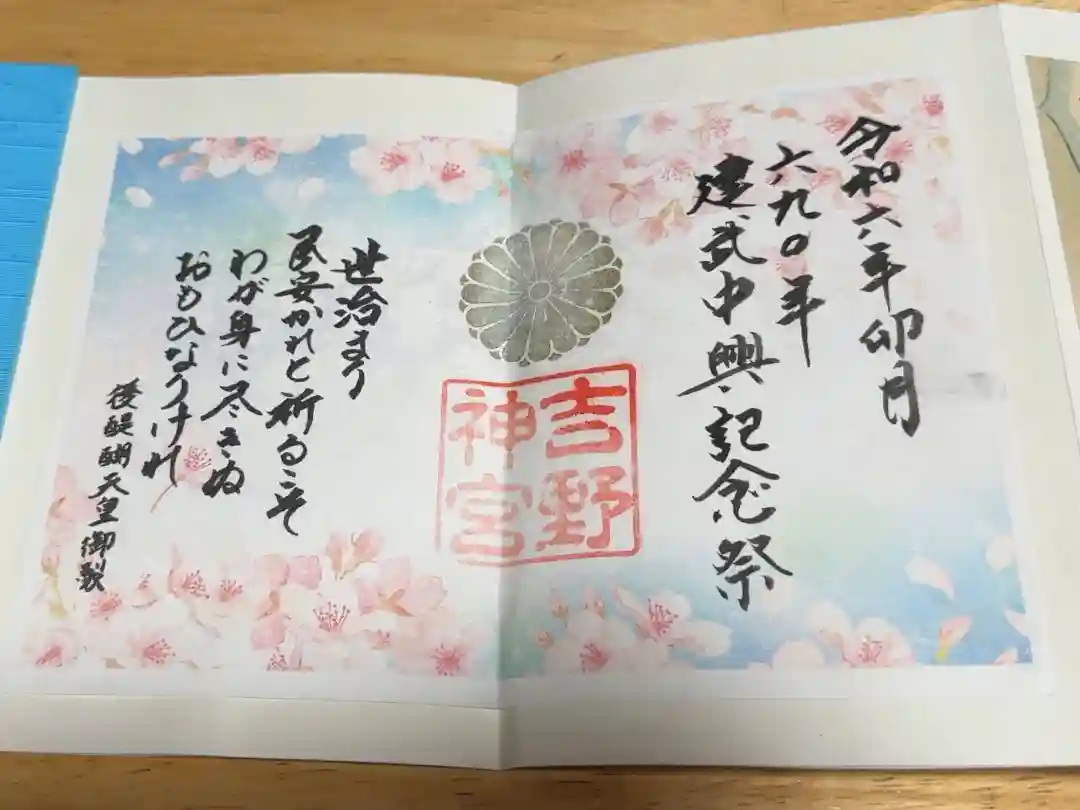 令和六年卯月
六九〇年
建武中興記念祭
吉野
神宮
世治まり
民安かれと祈るこそ
わが身に尽きぬ
おもひなりけれ
後醍醐天皇御製